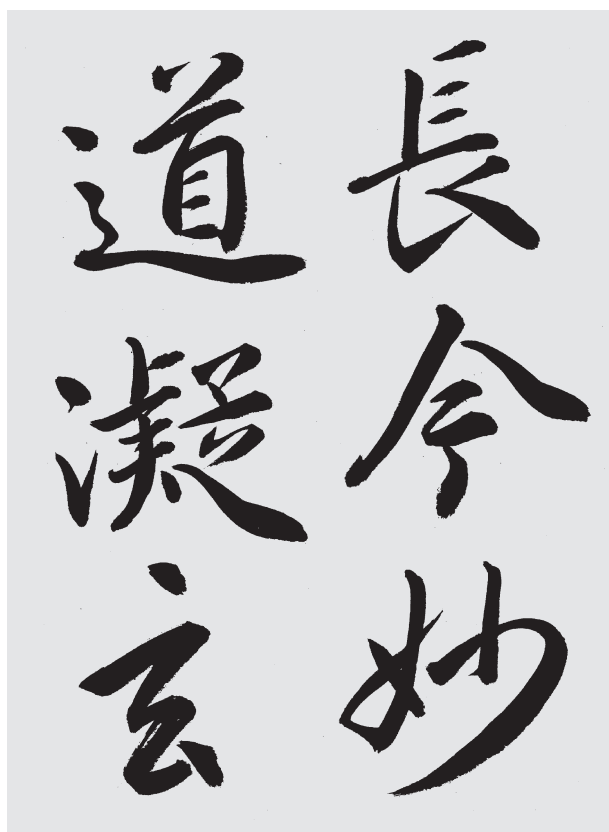 長今妙
道凝玄